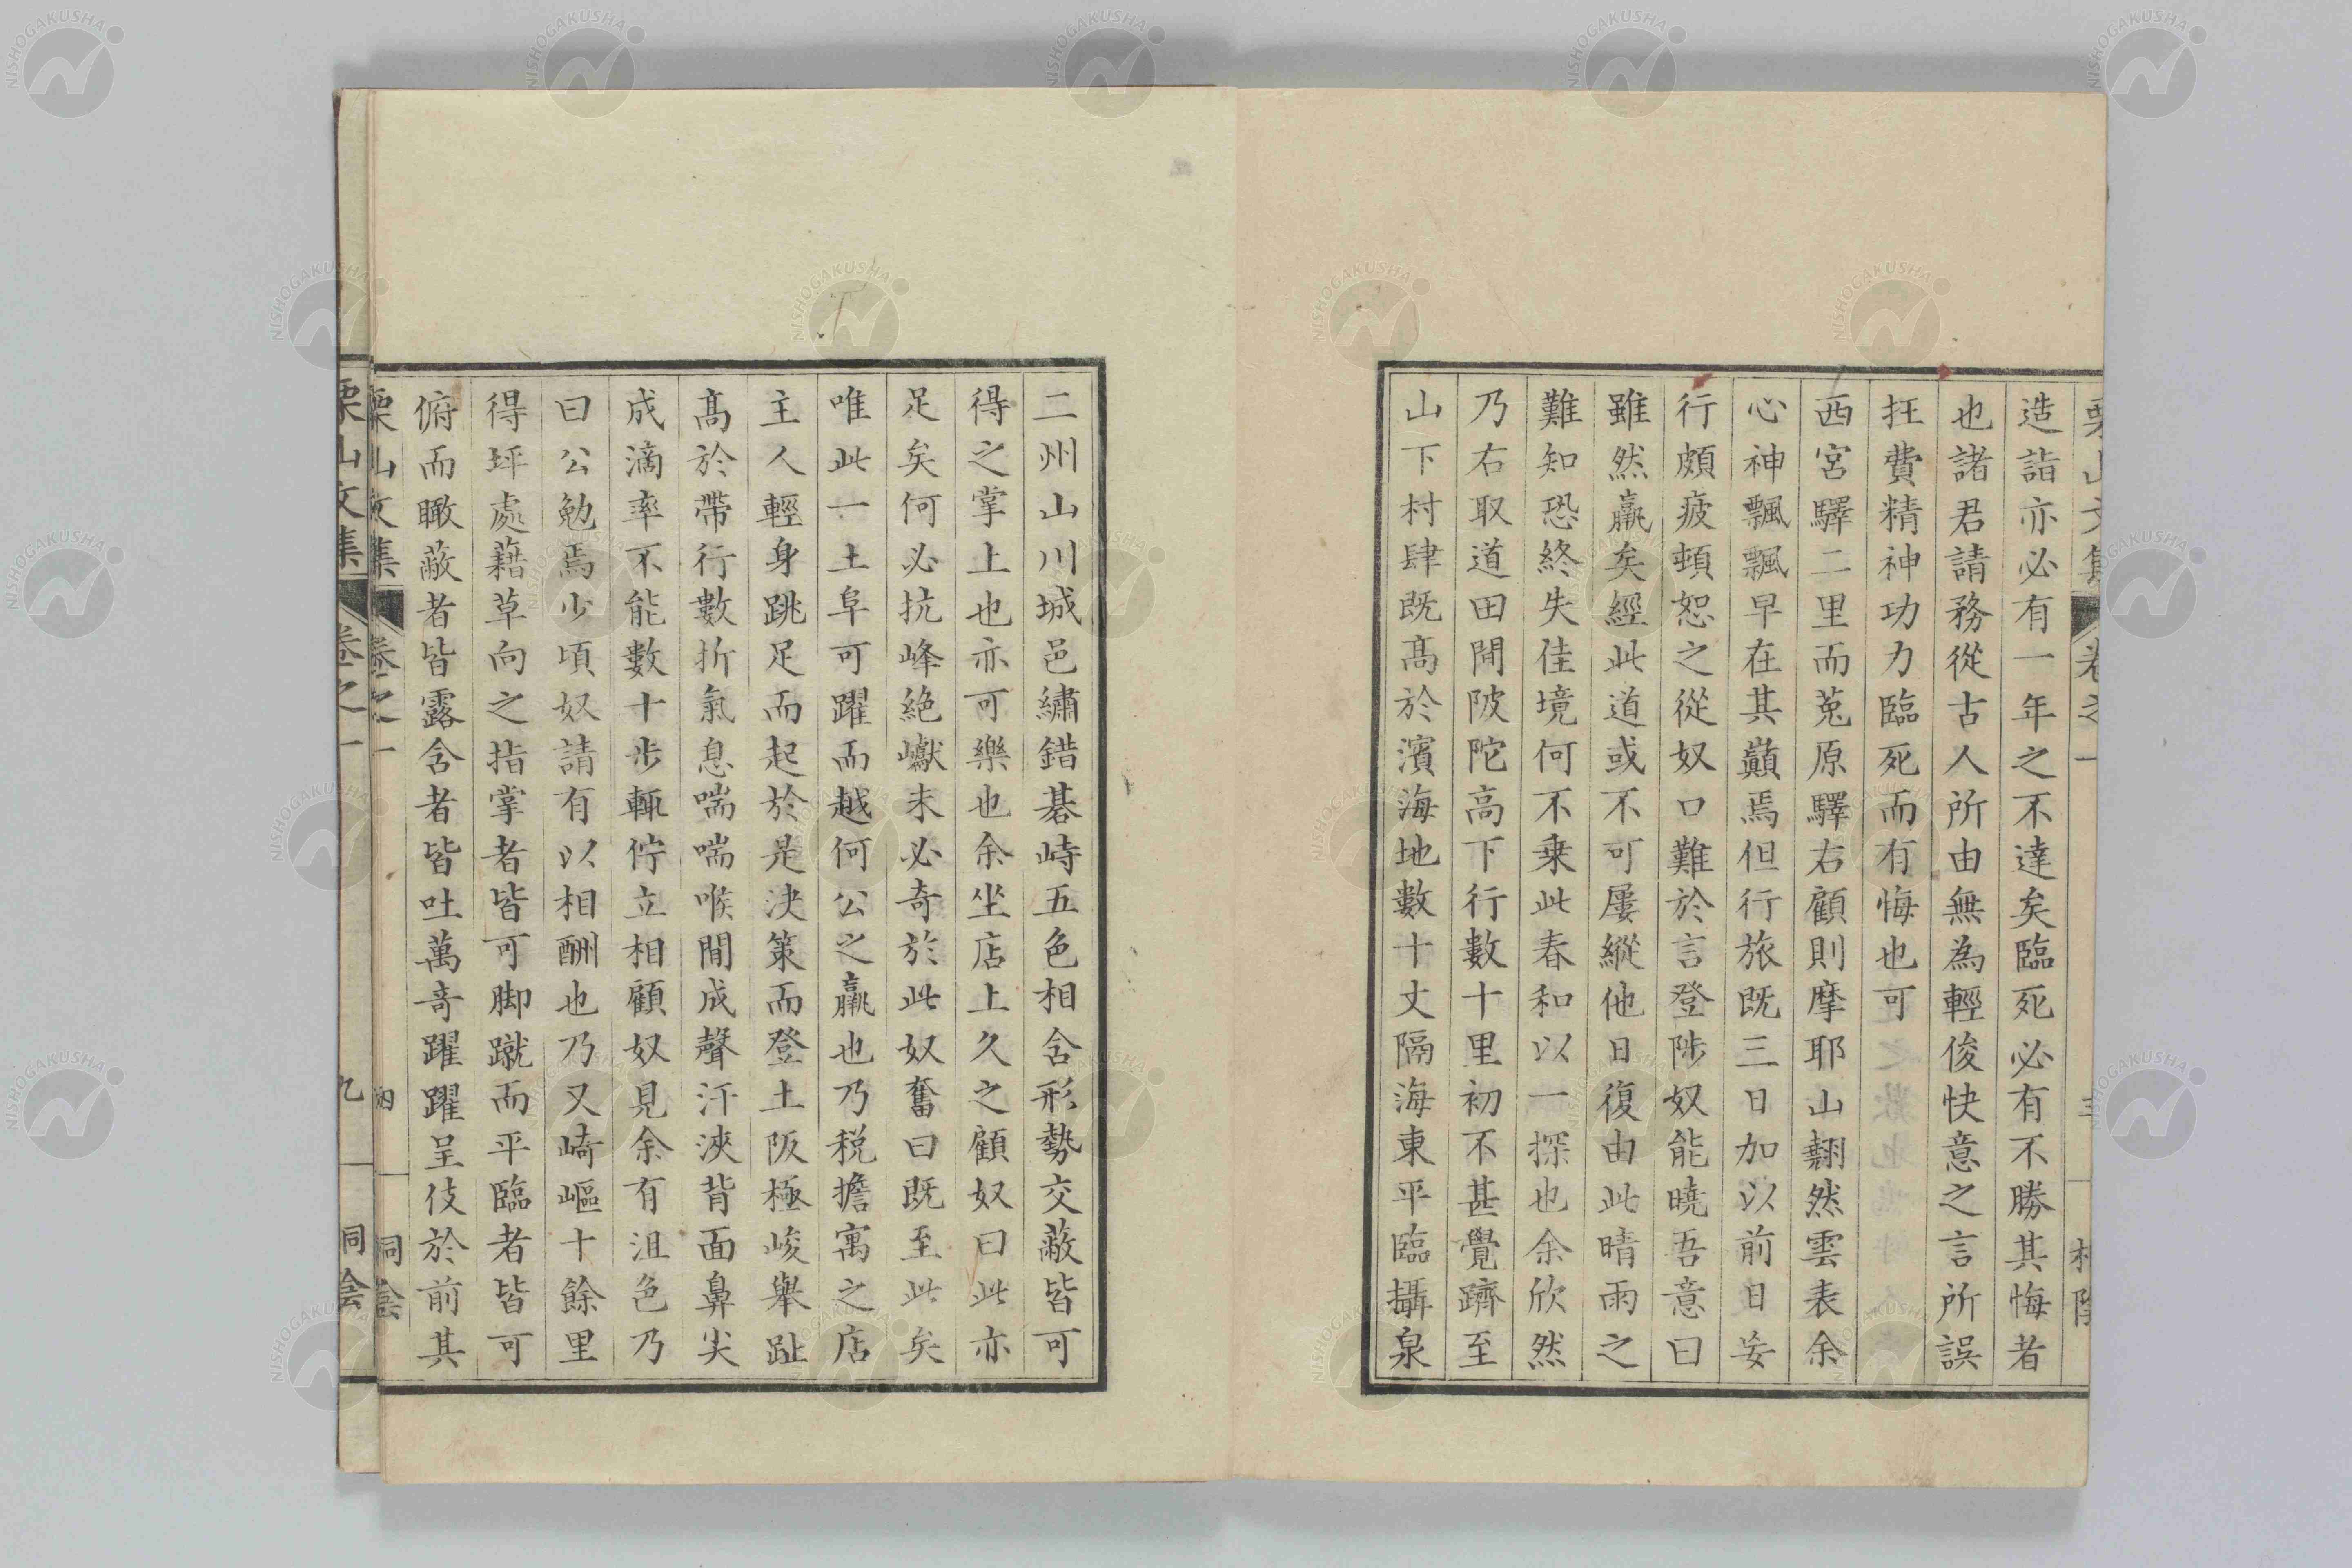 造詣亦必有一年之不達矣臨死必有不勝其悔者
也諸君請務從古人所由無為輕俊快意之言所誤
抂費精神功力臨死而有悔也可
西宮驛二里而菟原驛右顧則摩耶山翹然雲表余
心神飄飄早在其巔焉但行旅既三日加以前日妄
行頗疲頓恕之從奴口難於言登陟奴能曉吾意曰
雖然羸矣經此道或不可屢縱他日復由此晴雨之
難知恐終失佳境何不乗此春和以一探也余欣然
乃右取道田間陂陀高下行數十里初不甚覺躋至
山下村肆既髙於濱海地數十丈隔海東平臨攝泉
二州山川城邑繡錯碁峙五色相含形勢交蔽皆可
得之掌上也亦可樂也余坐店上久之顧奴曰此亦
足矣何必抗峰絶巘未必奇於此奴奮曰既至此矣
唯此一土阜可躍而越何公之羸也乃税擔寓之店
主人輕身跳足而起於是決策而登土阪極峻舉趾
髙於帶行數折氣息喘喘喉間成聲汗浹背面鼻尖
成滴率不能數十步輒佇立相顧奴見余有沮色乃
曰公勉焉少頃奴請有以相酬也乃又崎嶇十餘里
得坪處藉草向之指掌者皆可脚蹴而平臨者皆可
俯而瞰蔽者皆露含者皆吐萬竒躍躍呈伎於前其
栗山文集 卷之一
栗山文集 卷之一 九
NISHOGAKUSHA